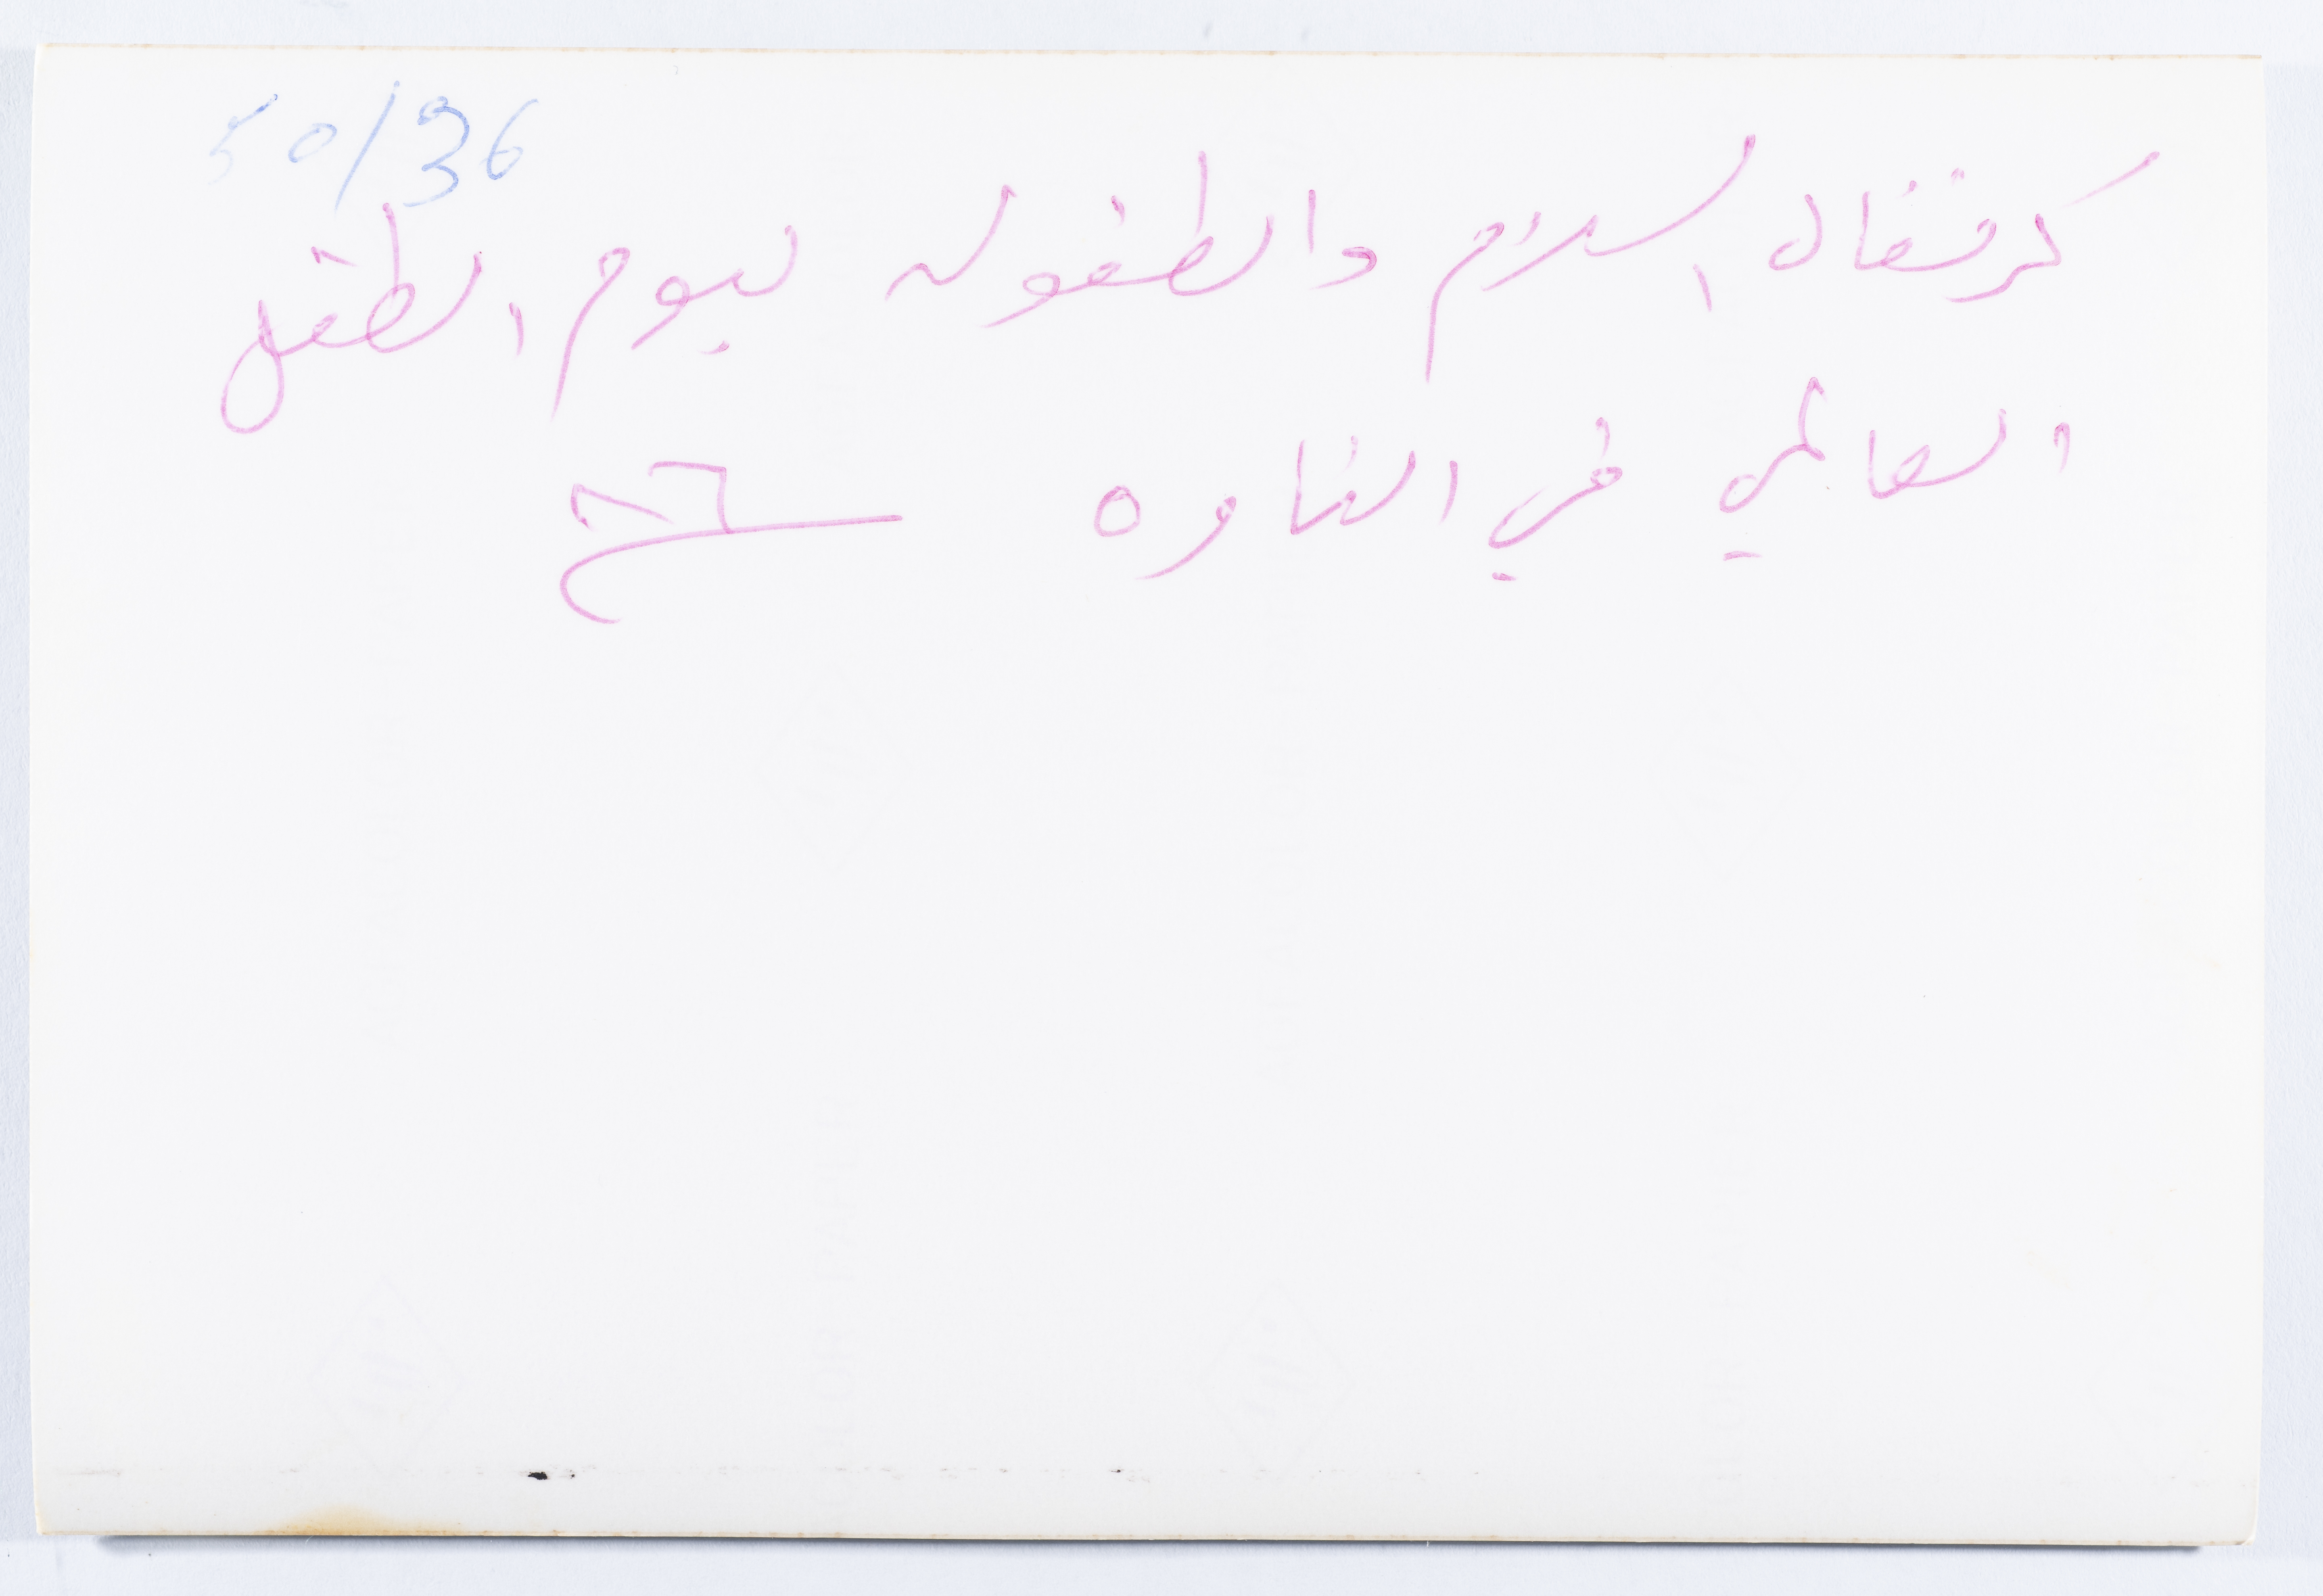 50/36
كرنفال السلام والطفوله ليوم الطفل
العالمي في الناوه ٨٦